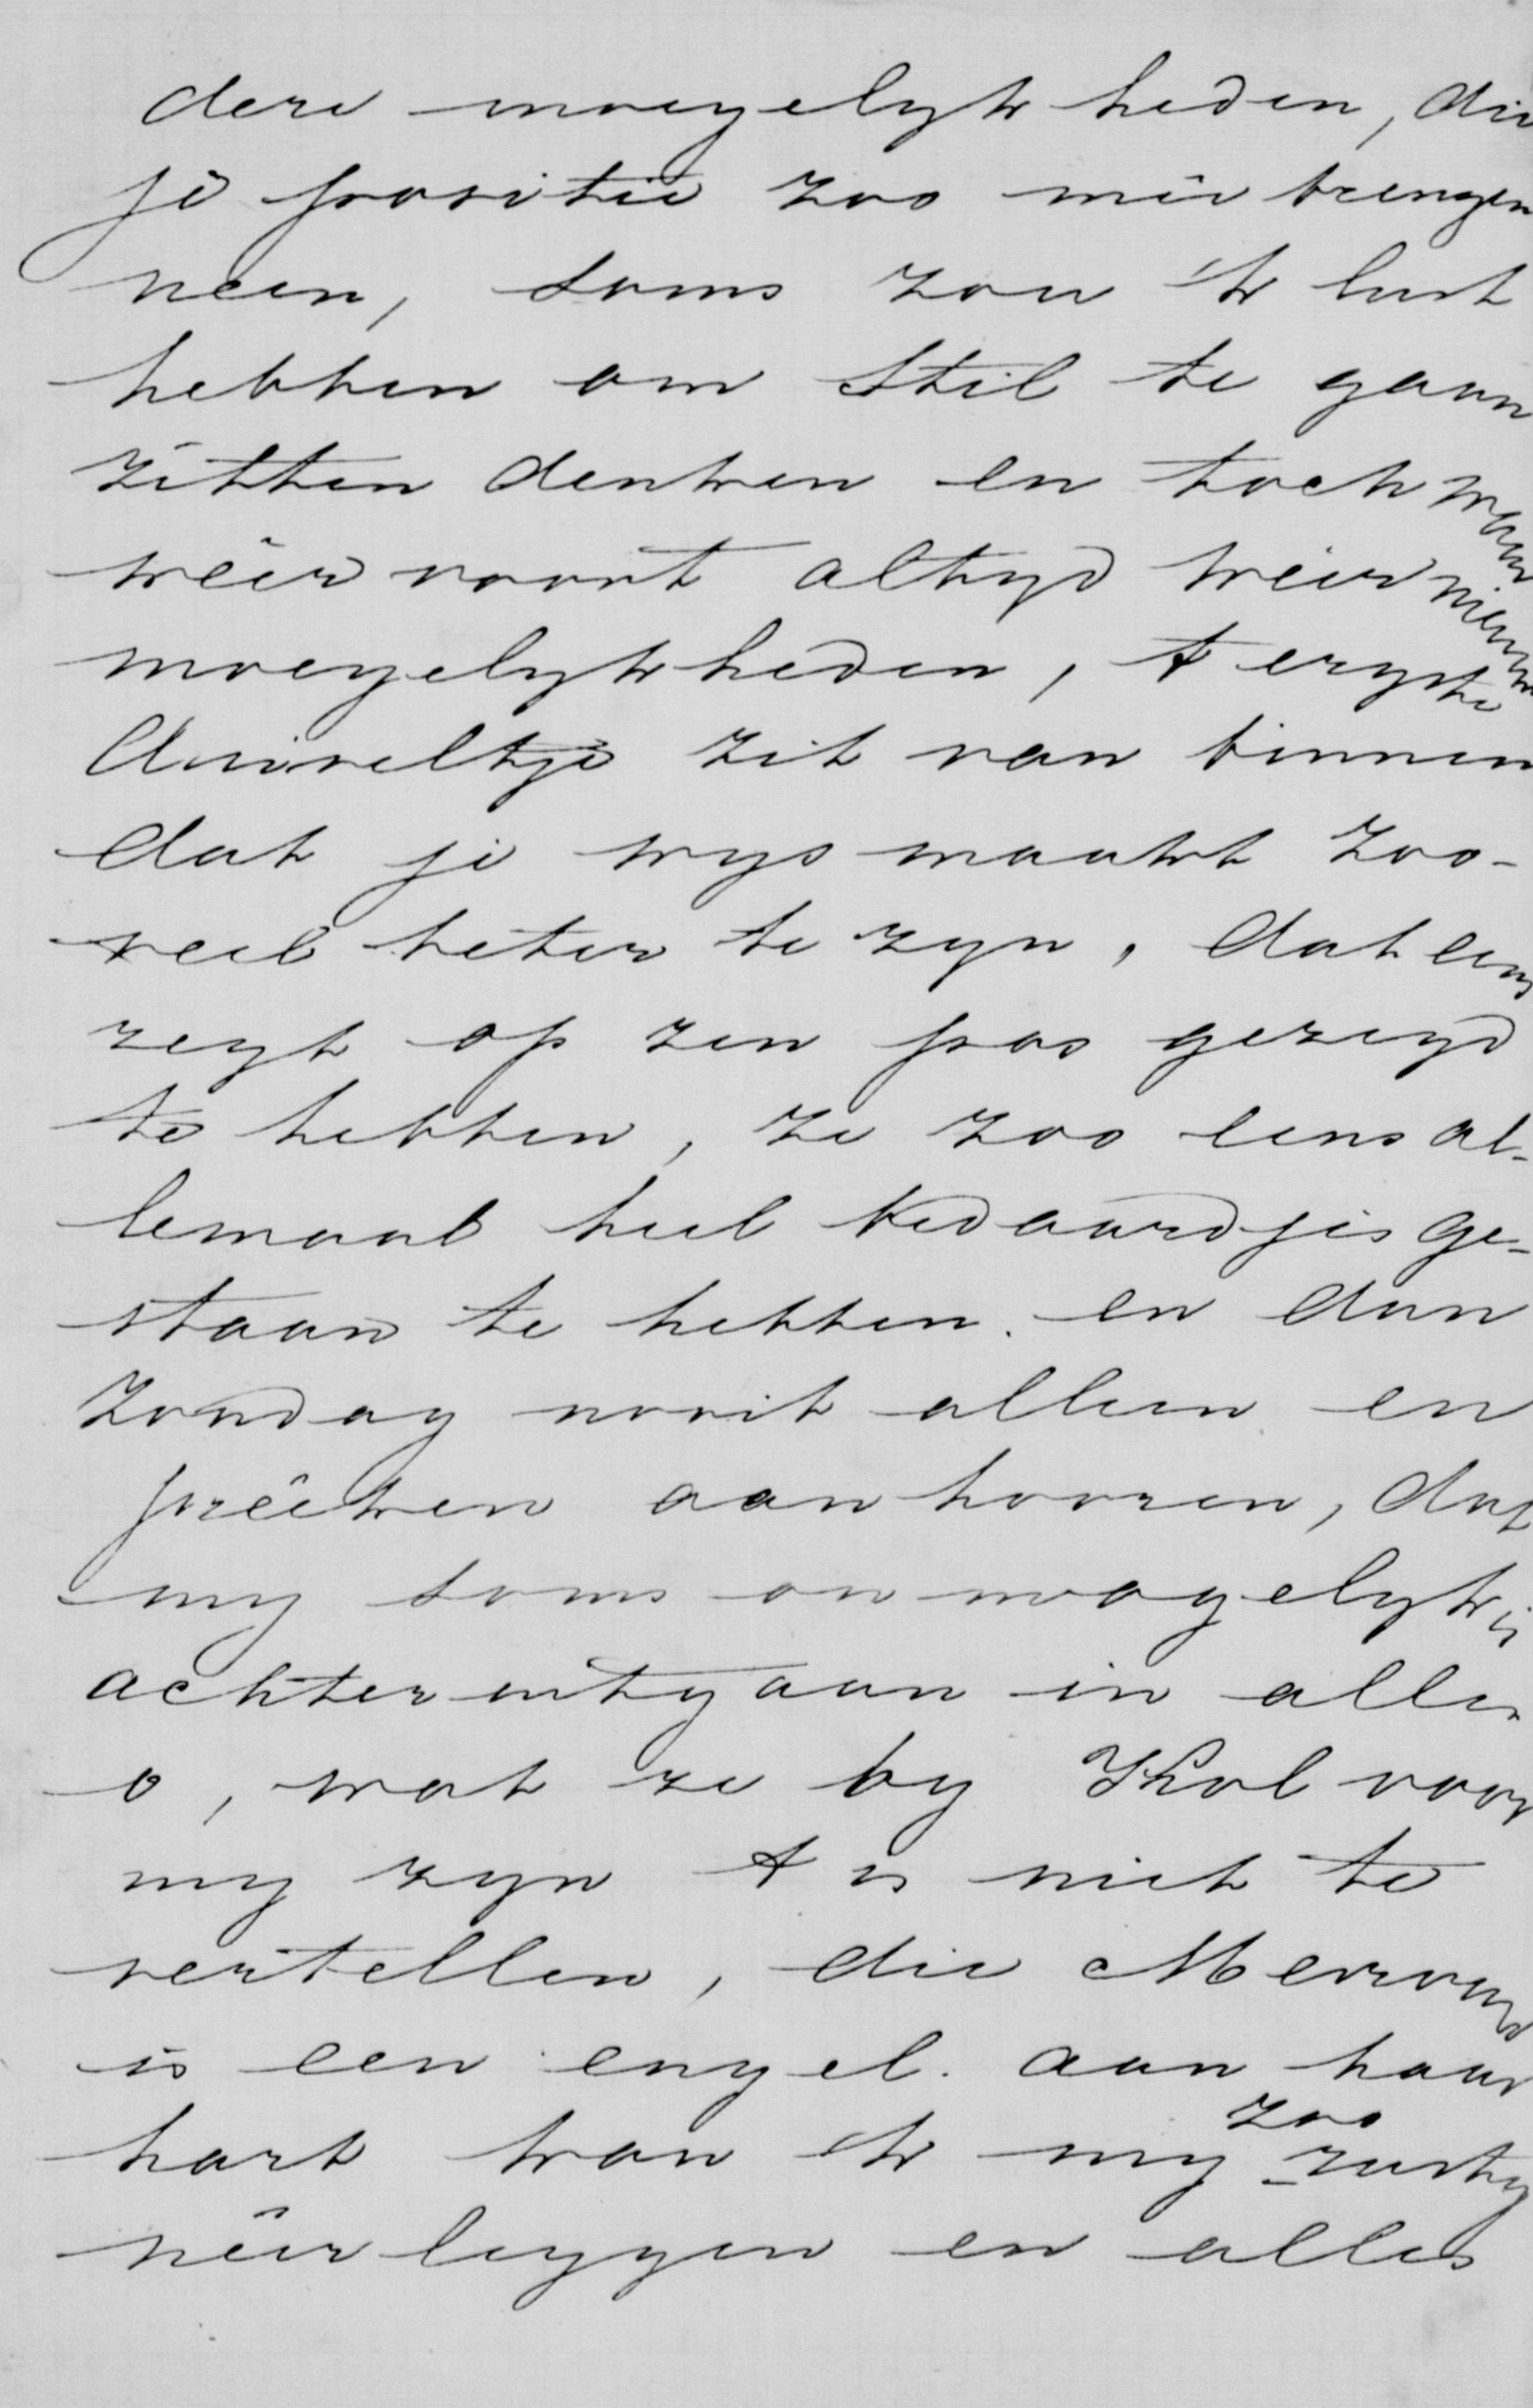 dere moeyelykheden, die
je positie zoo meê brengen
neen, soms zou 'k lust
hebben om stil te gaan
zitten denken en toch maar
weêr voort altyd weer nieuwe
moeyelykheden, 't ergste
duiveltje zit van binnen
dat je wys maakt zoo-
veel beter te zyn, dat een
zegt op zen pas gezegd
te hebben, ze zoo eens al-
lemaal heel bedaardjes ge-
staan te hebben. en dan
Zondag nooit alleen en
preêken aanhooren, dat
my soms onmogelyk is
achteruitgaan in alles
o, wat ze by Kol voor
my zyn 't is niet te
vertellen, die Mevrouw
is een engel. aan haar
hart kan ik my zoo rustig
neêrleggen en alles